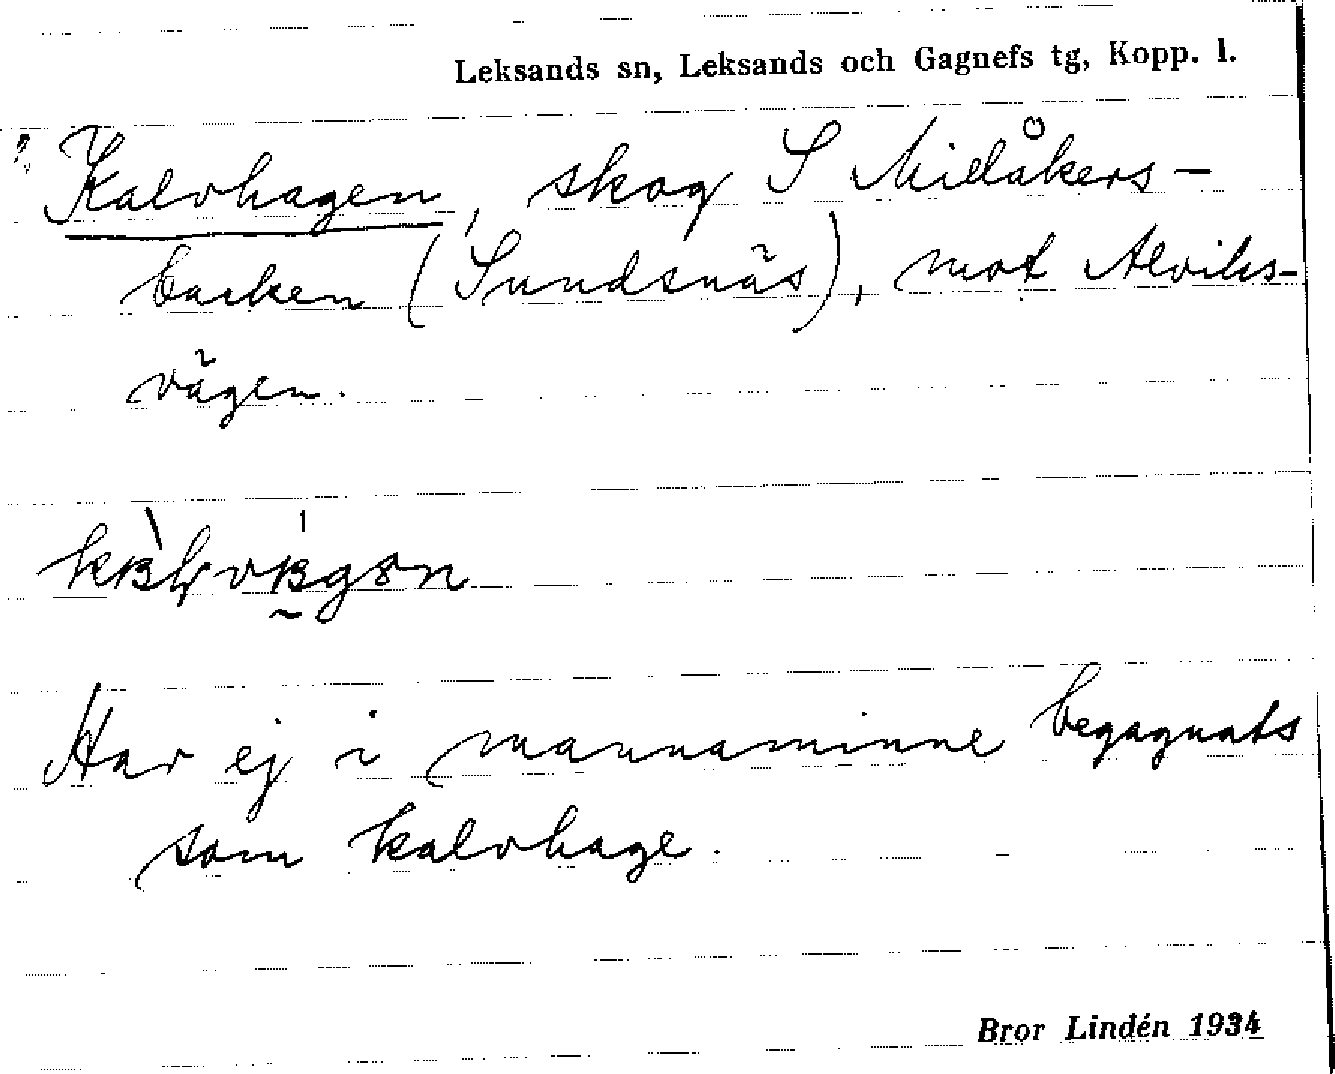 Leksands sn, Leksands och Gagnefs tg, Kopp. l.
Kalvhagen, skog S Midåkers-
backen (Sundsnäs), mot Alviks-
vägen.
Har ej i mannaminne begagnats
som kalvhage.
Bror Lindén 1934